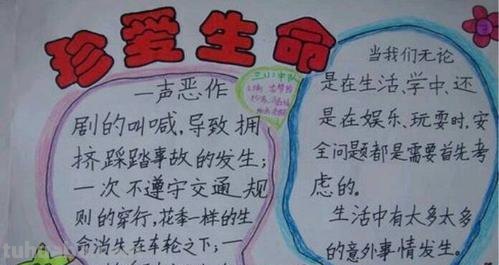 珍爱生命
一声恶作
剧的叫喊,导致拥
挤踩踏事故的发生;
一次不遵守交通规
则的穿行,花季一样的生
命消失在车轮之下;一
当我们无论
是在生活、学中、还
是在娱乐、玩耍时,安
全问题都是需要首先考
虑的。
生活中有太多太多
的意外事情发生。